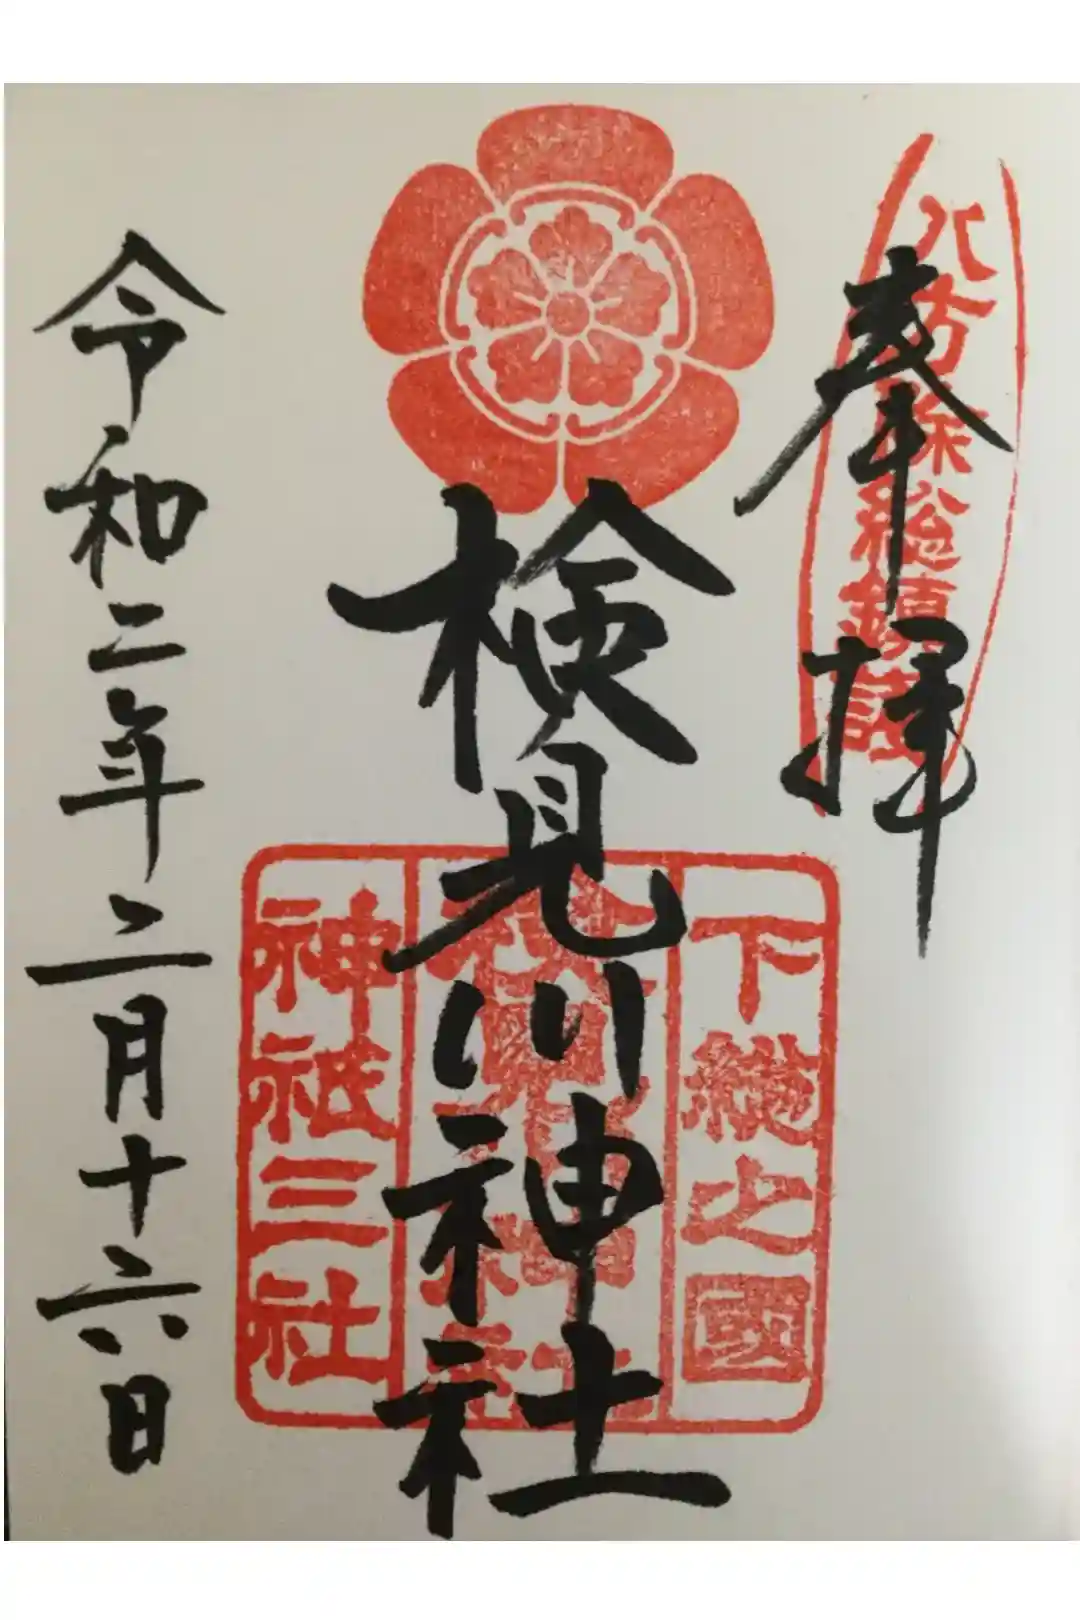 奉拝
八方除総鎮護
検見川神社
下總之國
検見川神社
神祇三社
令和二年二月十六日